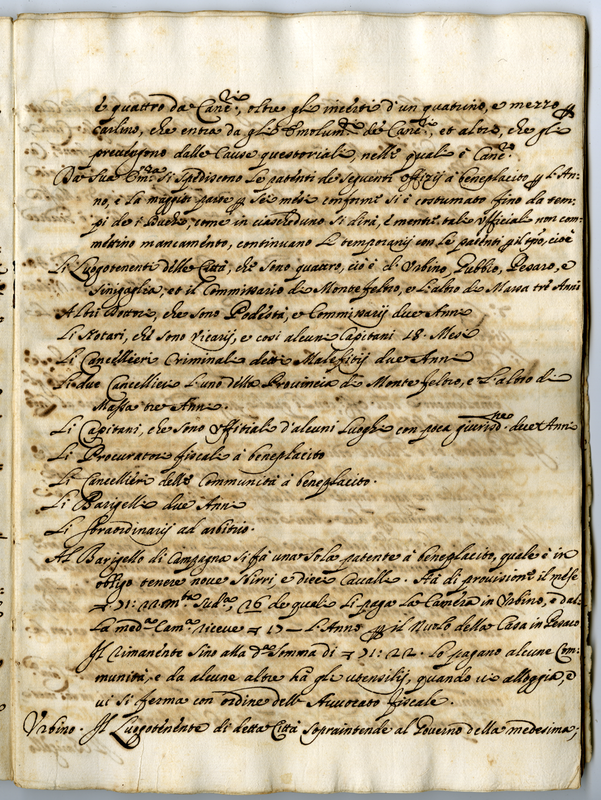 è quattro da Canc.ri, oltre gl'incerti d'un quatrino, e mezzo p
carlino, che entra da gl'Emolum.ti de Canc.ri, et altro, che gli
provengono dalle Cause questoriali, nelle quali è Canc.re
Da Sua Em.za si spediscono le patenti de seguenti Uffizij à beneplacito p l'An-
no, e la maggior parte p Sei mesi conforme si è costumato fino da tem-
pi de i Duchi, come in ciascheduno si dirà, e mentre tali Ufficiali non com-
mettino mancamento, continuano le temporarij con le patenti p il tpo, cioè
Li Luogotenenti delle Città, che sono quattro, cioè di Urbino, Gubbio, Pesaro, e
Sinigaglia, et il Commissario di Monte feltro, e l'altro di Massa tre Anni
Altri Dottori, che sono Podestà, e Commissarij due Anni
Li Notari, che sono Vicarij, e così alcuni Capitani 18. Mesi
Li Cancellieri Criminali detti Malefitij due Anni
Li due Cancellieri l'uno della Provincia di Monte feltro, e l'altro di
Massa tre Anni.
Li Capitani, che sono Uffitiali d'alcuni Luoghi con poca giurisd.ne due Anni
Li Procuratori fiscali à beneplacito
Li Cancellieri delle Communità à beneplacito.
Li Barigelli due Anni
Li straordinarij ad arbitrio.
Al Barigello di Campagna si fà una sola patente à beneplacito, quale è in
obligo tenere nove Sbirri e dieci Cavalli. Hà di provisione il mese
71:22 m.ta Sud.a, 26 de quali li paga la Camera in Urbino, e dal-
la med.ma Cam.a riceve 17 — l'Anno p il Nolo della Casa in Pesaro
Il rimanente sino alla d.a Somma di 71:22. lo pagano alcune Com-
munità, e da alcune altre hà gli utensilij, quando vi alloggia, e
vi si ferma con ordine dell'Avvocato fiscale.
Urbino. Il Luogotenente di detta Città sopraintende al Governo della medesima;